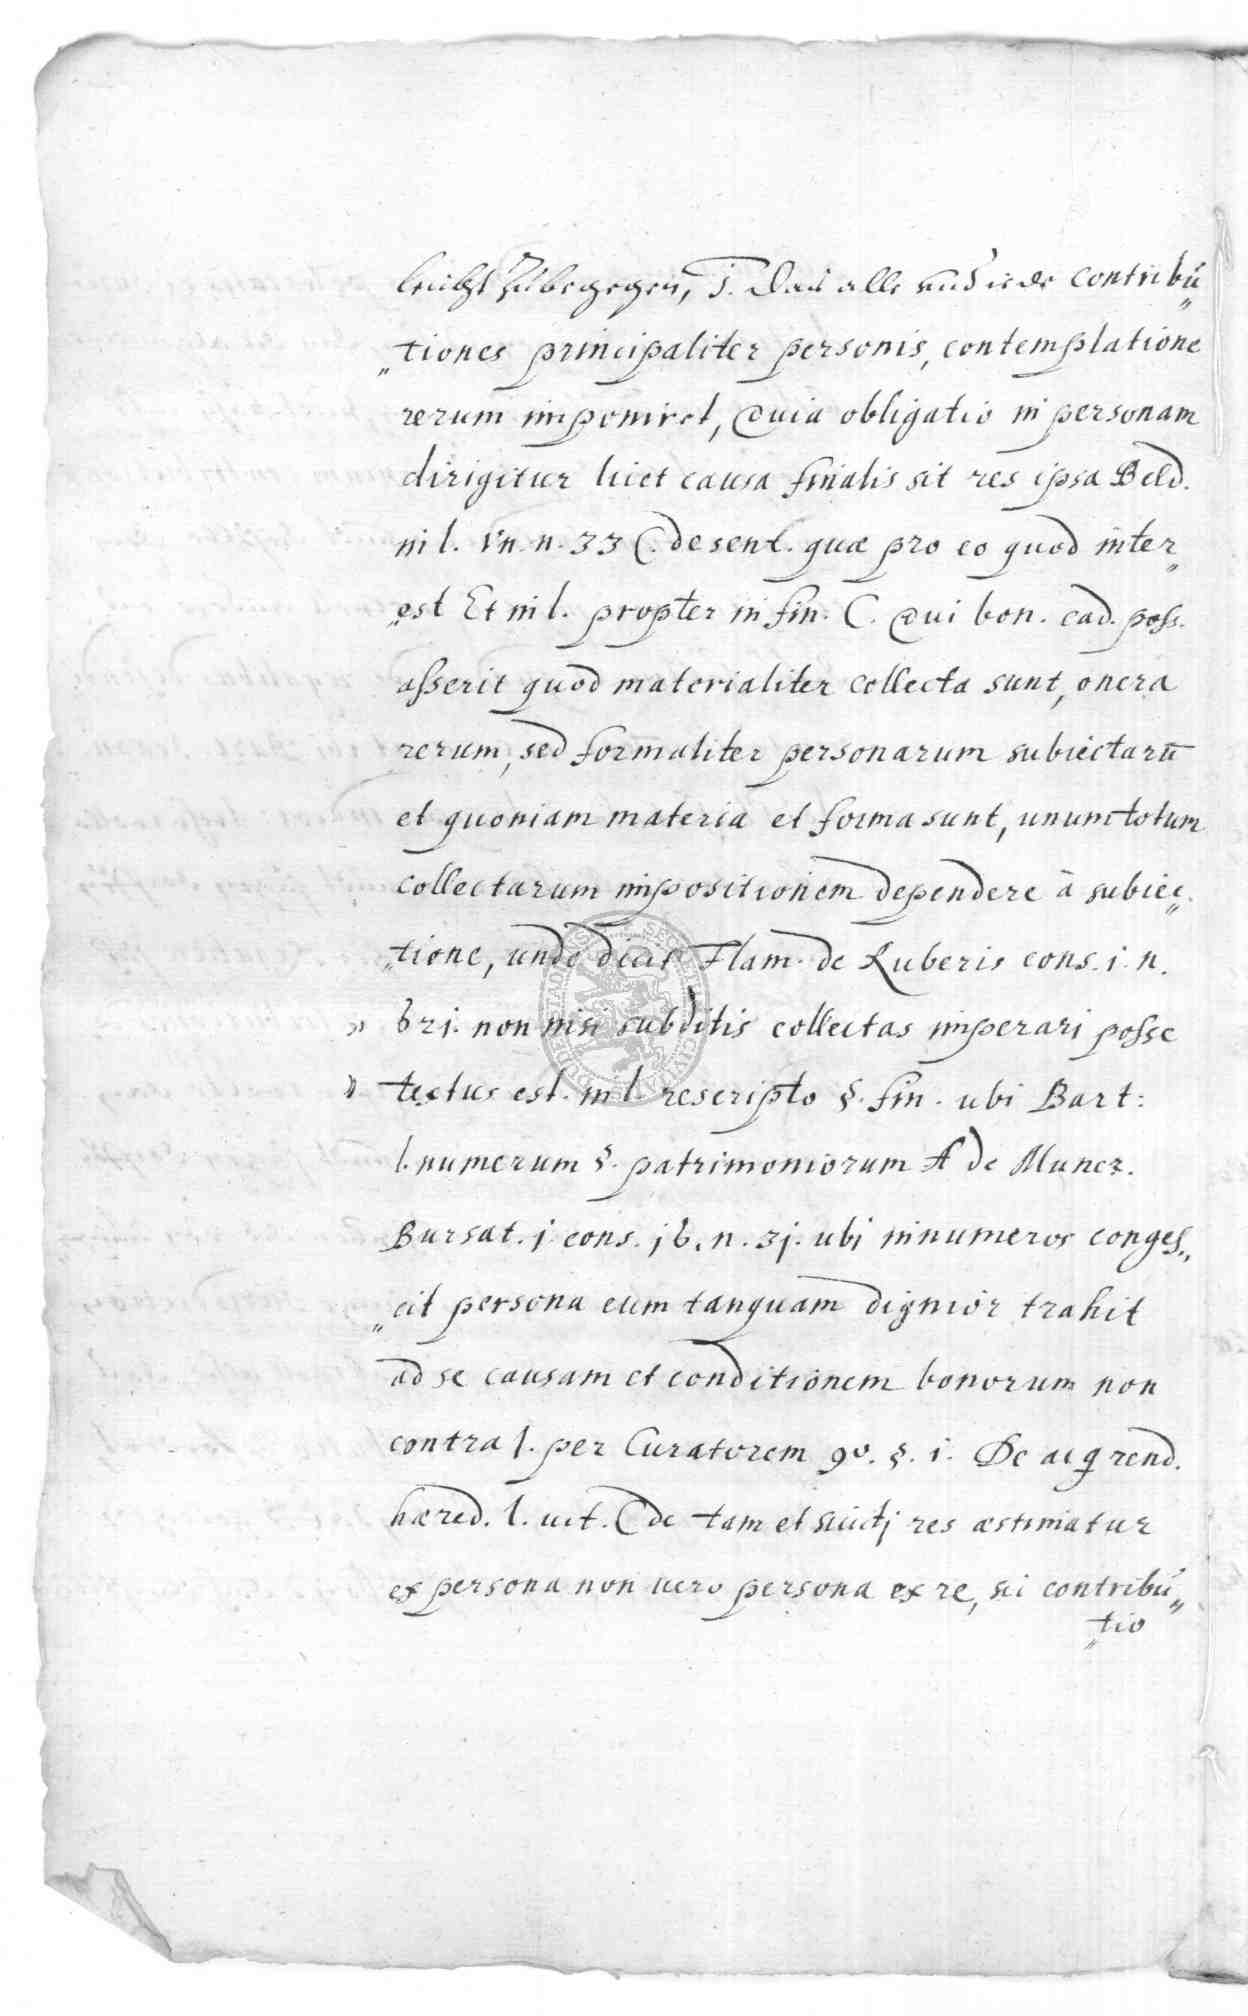 leicht zu begegen, 1. Das alle und iede contribu„
„tiones principaliter personis, contemplatione
rerum imponiret, Quia obligatio in personam
dirigitur licet causa finalis sit res ipsa Beld.
in l. Vn. n. 33 C. de sent. quæ pro eo quod inter„
„est Et in l. propter in fin. C. Qui bon. ced. poss.
asserit quod materialiter collecta sunt, onera
rerum, sed formaliter personarum subiectarū
et quoniam materia et forma sunt, unum totum
collectarum impositionem dependere à subiec„
„tione, unde dicit Flam. de Ruberis cons. 1. n.
621. non nisi subditis collectas imperari posse
textus est. in l. rescripto §. fin. ubi Bart:
l. numerum §. patrimoniorum ff de Muner.
Bursat. j. cons. j6. n. 3j. ubi innumeros conges„
„cit persona eum tanquam dignior trahit
ad se causam et conditionem bonorum non
contra l. per Curatorem 90. §. i. De acq rend.
hæred. l. uit. C de tam et res æstimatur
ex persona non uero persona ex re, sic contribu„
„tio